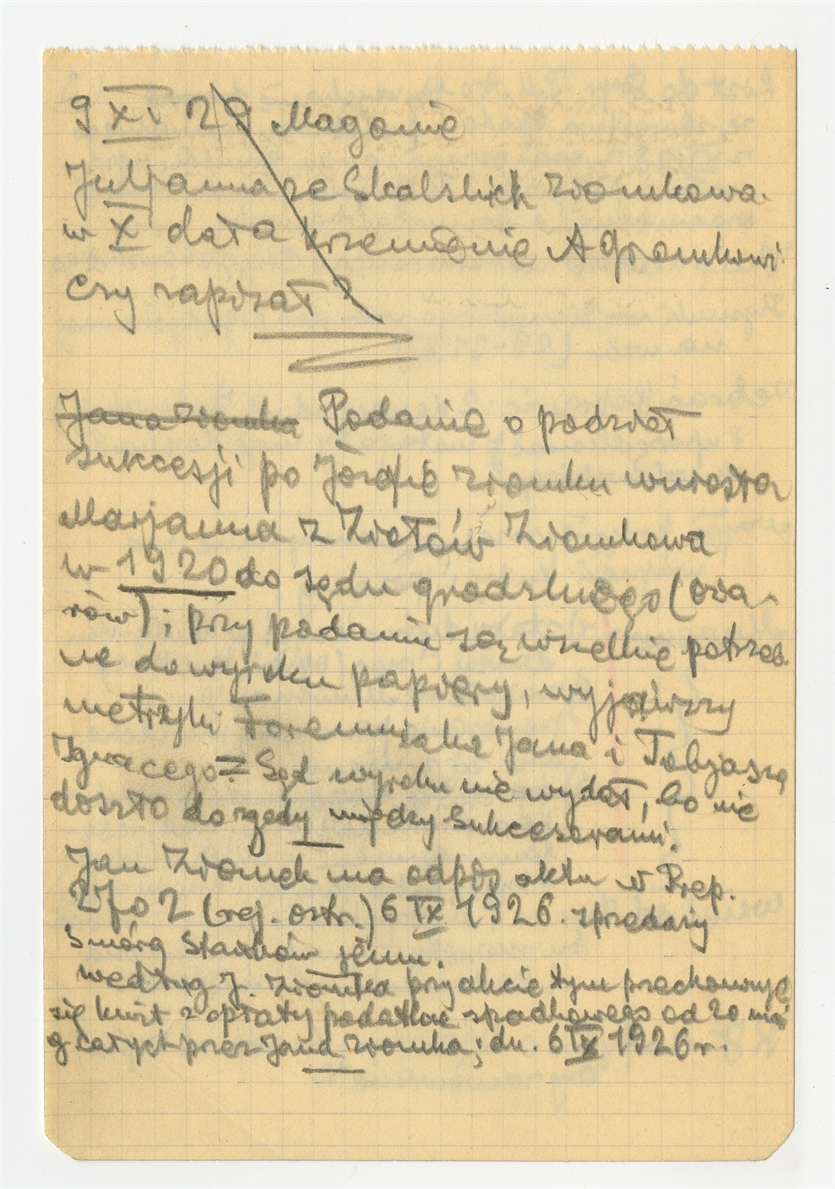 9 XI 29 Magonie
Juljanna ze Skalskich Ziomkowa
w X dała krzemienie A Gromkowi
czy zapisał?
Jana Ziomka Podanie o podział
sukcesji po Józefie Ziomku wniosła
Marjanna z Ziołów Ziomkowa
w 1920 do sądu grodzkiego (oża-
rów); przy podaniu są wszelkie potrzeb.
ne do wyroku papiery, wyjąwszy
metryki Foremniaka Jana i Tobjasza
Ignacego. Sąd wyroku nie wydał, bo nie
doszło do zgody między sukcesorami.
Jan Ziomek ma odpis aktu N Rep.
(rej. ostr.) 6 IX 1926. sprzedaży
jemu.
według J. Ziomka przy akcie tym przechowuje
się kwit z opłaty podatku spadkowego od 20
przez Jana Ziomka; dn. 6 IX 1926 r.